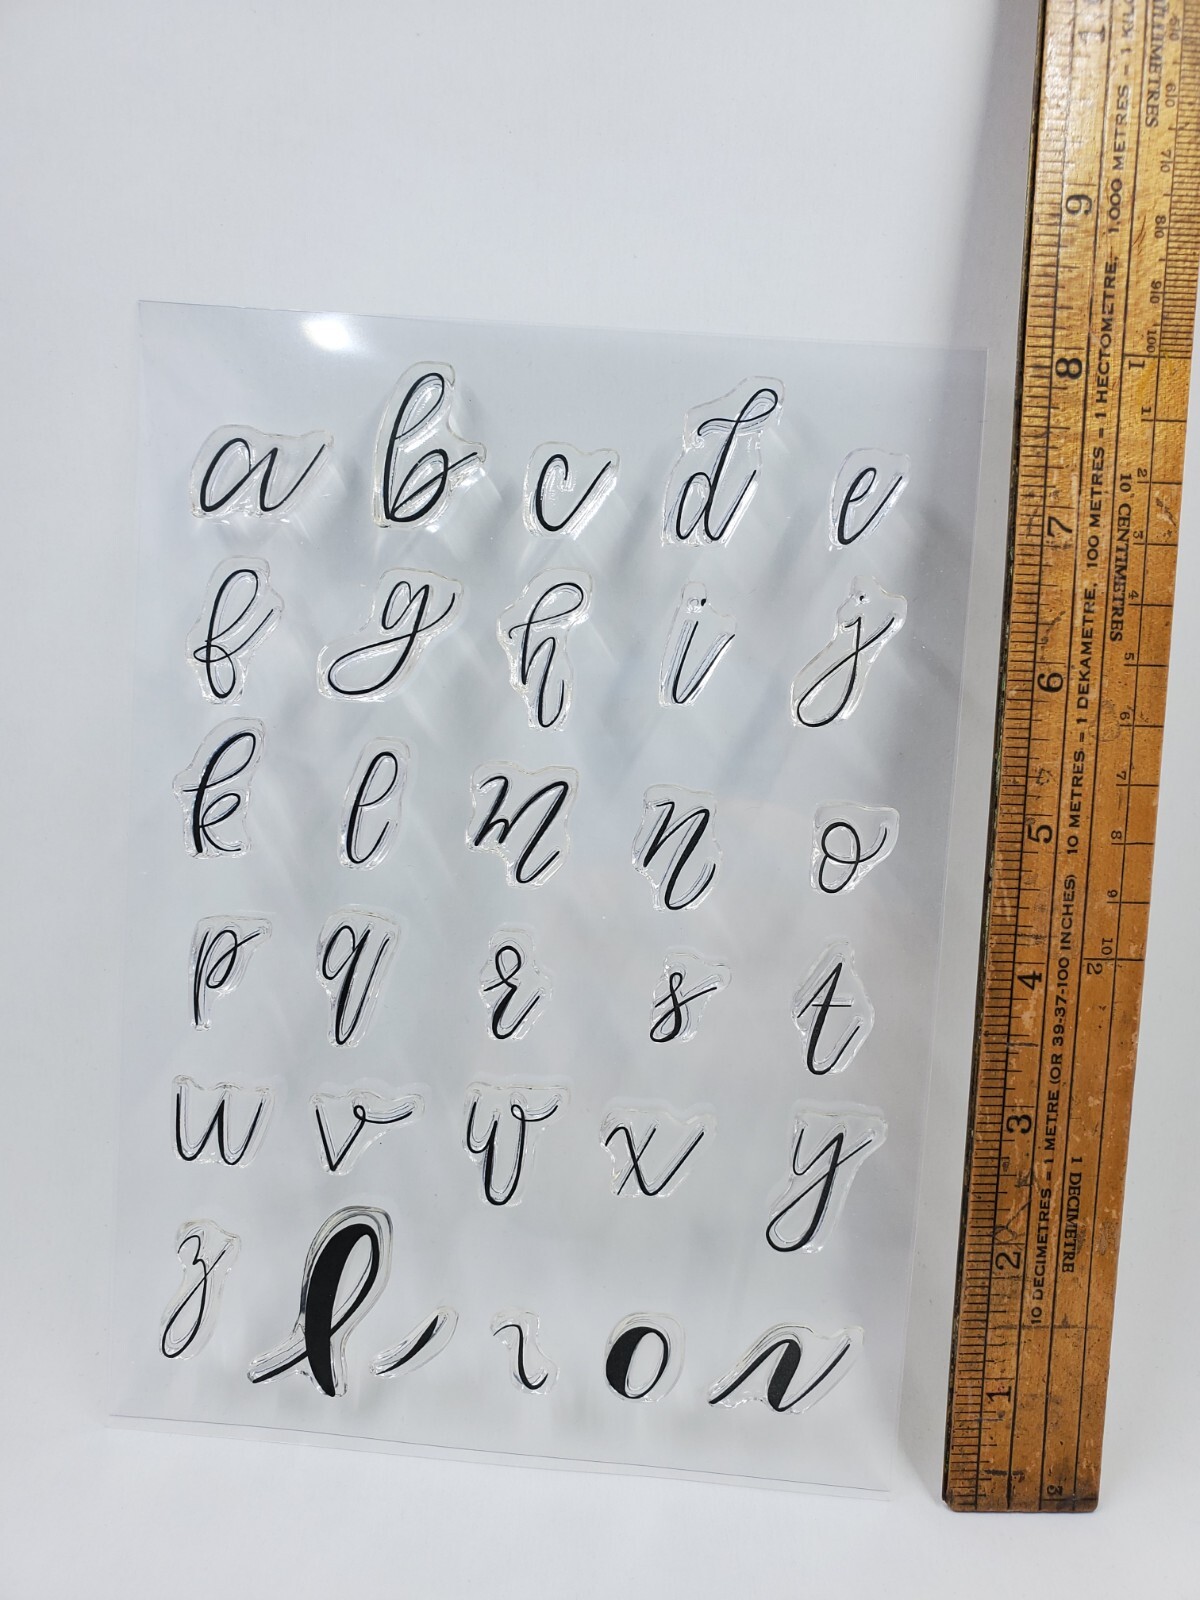 a b c d e
f g h i j
k l m n o
p q r s t
u v w x y
z
9
8
7
6
5
4
3
2
1
10 DECIMETRES = 1 METRE (OR 39·37·100 INCHES) 10 METRES = 1 DEKAMETRE, 100 METRES = 1 HECTOMETRE, 1,000 METRES = 1 KILO
1 DECIMETRE
10 CENTIMETRES
1 2 3 4 5 6 7 8 9 10
1 2 3
60 70 80 90 100